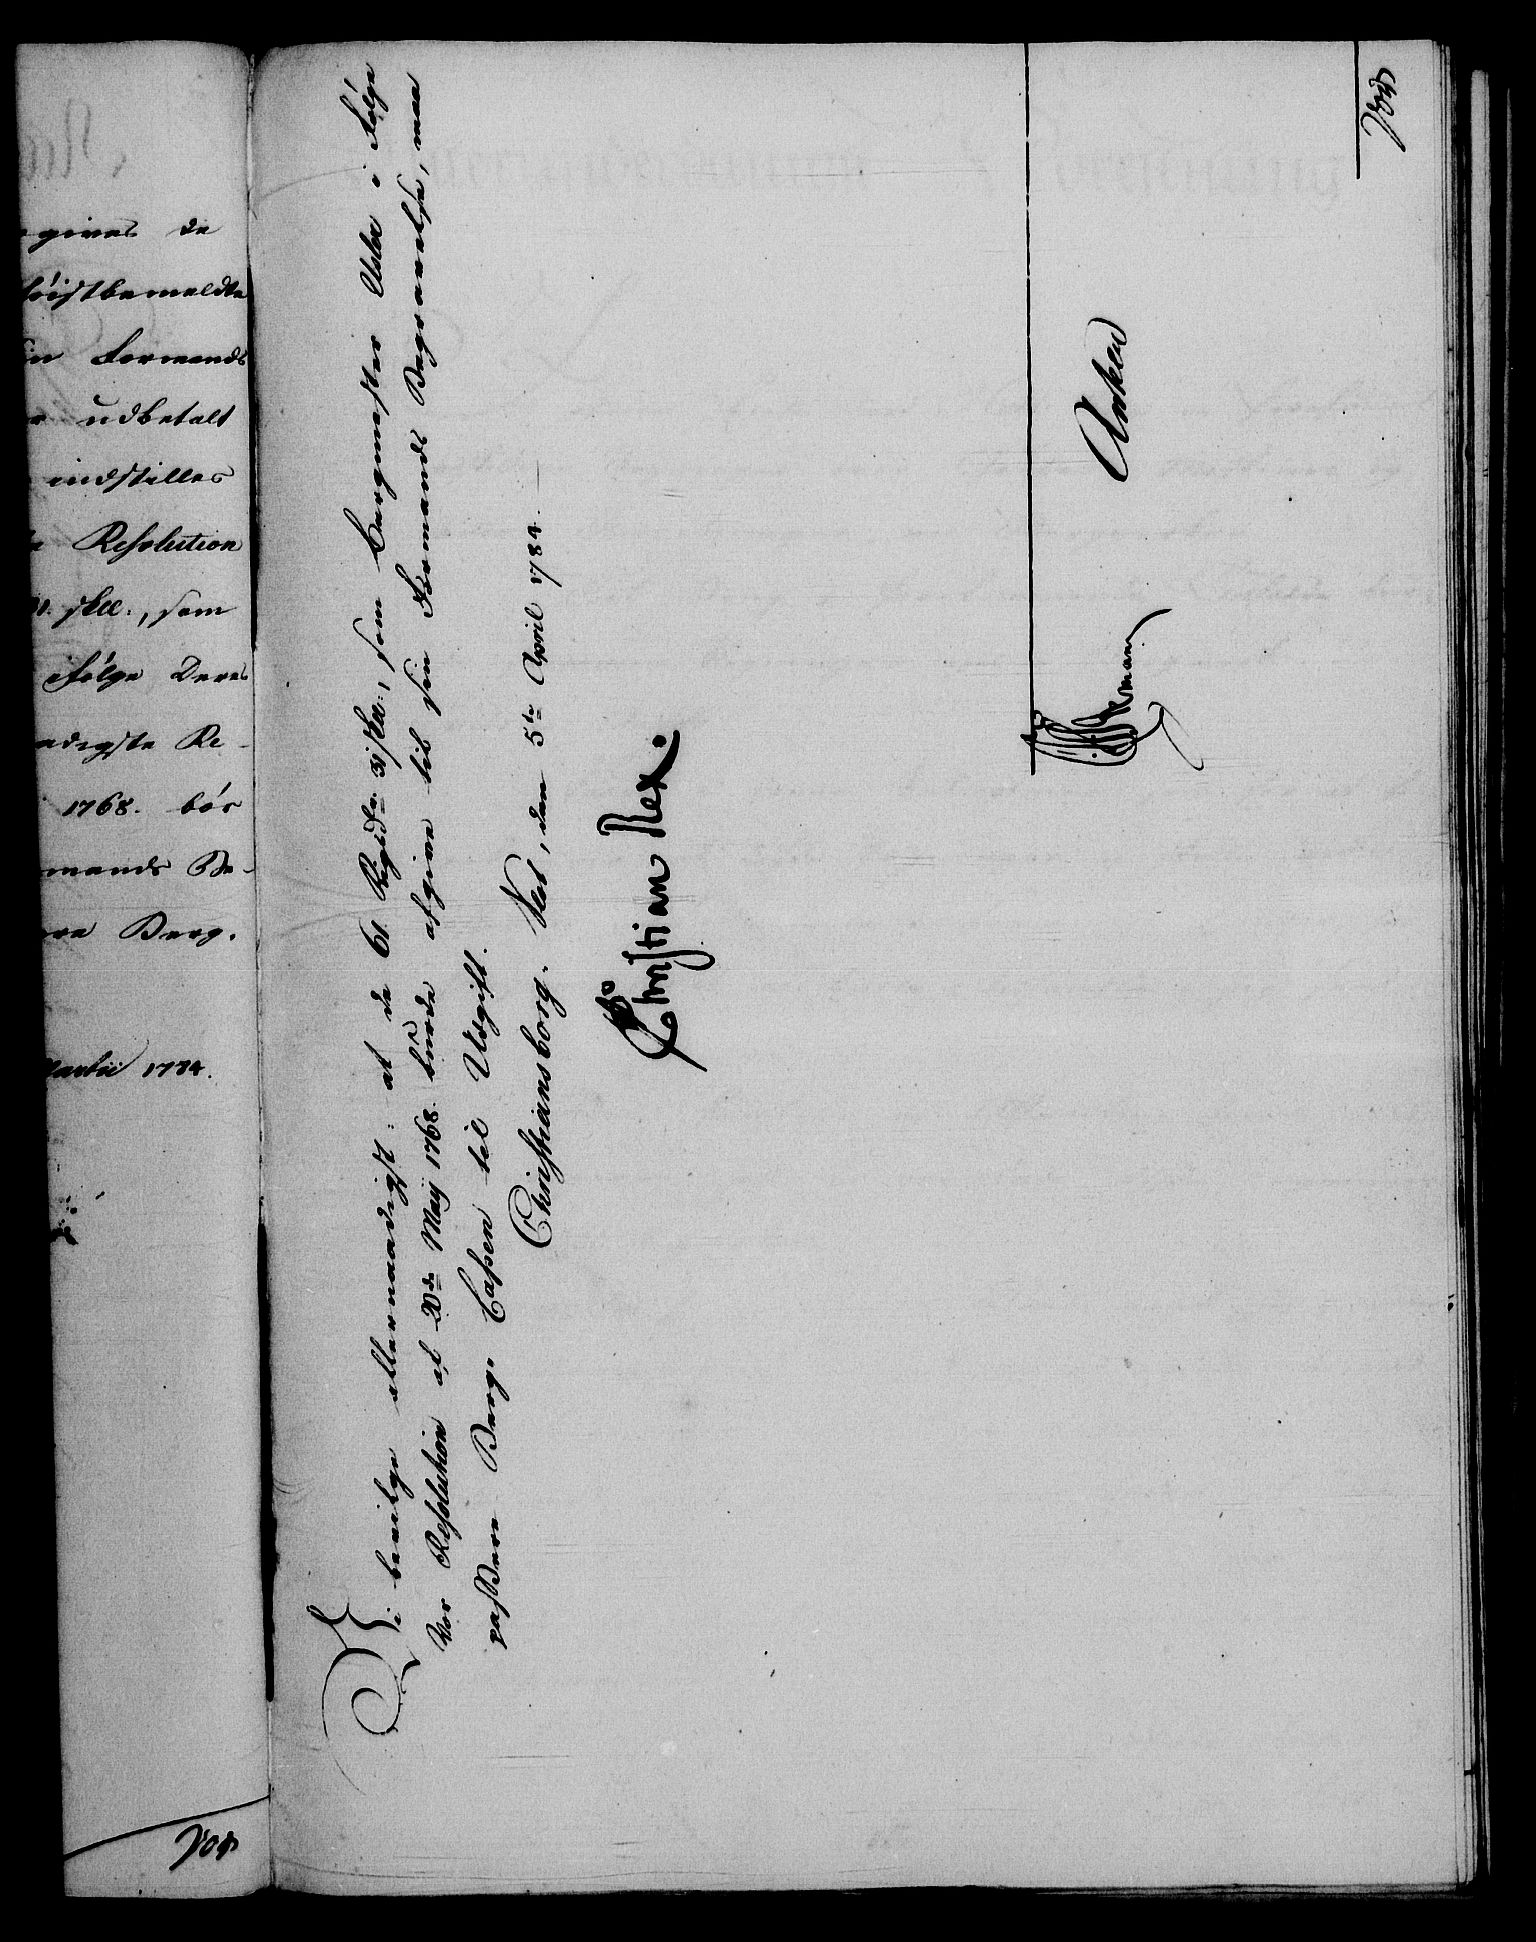 givet de
høistbemeldte
Formands
udbetalt
indstilles
Resolution
31. skl:, som
følge Deres
naadigste Re-
1768. bør
mands Be-
Berg.
Martii 1784.
Vor
Vi bevilge allernaadigst: at de 61 Rigsd. 31 skl:, som Bergmester Zister i Følge
Vor Resolution af 20de Maij 1768. burde afgive til sin Formands Begravelse, maa
passere Berg. Cassen til Udgift.
Christiansborg. Slot, den 5te April 1784.
Christian Rex.
Anker
Vor